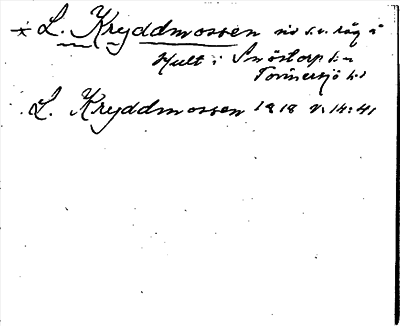 * L. Kryddmossen vid s.v. råg i
Hult i Snöstorp sn
Tönnersjö hd
L. Kryddmossen 1818 V: 14: 41